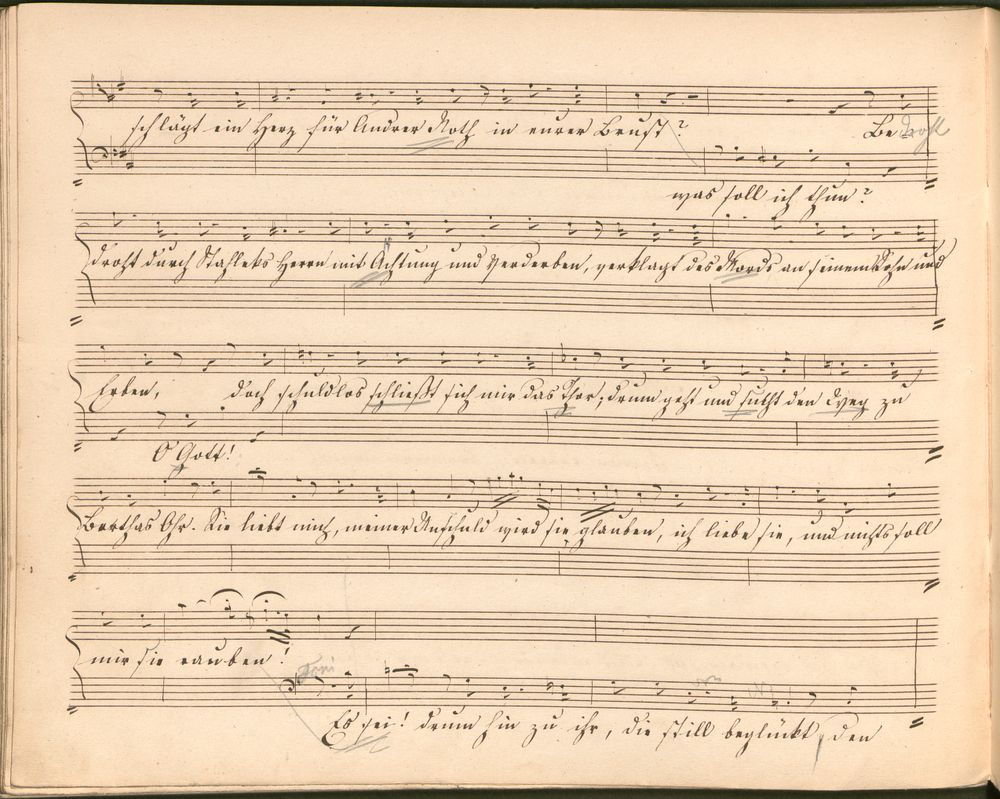 schlägt ein Herz für Andrer Noth in eurer Brust? Be droht
was soll ich thun?
droht durch Stahleks Herrn mit Achtung und Verderben, verklagt des Mords an seinem Sohn und
Erben, doch schuldlos schließt sich mir das Thor; drum geht und sucht den Weg zu
O Gott!
Berthas Ohr. Sie liebt mich, meiner Unschuld wird sie glauben, ich liebe sie, und nichts soll
mir sie rauben!
Es sei! drum hin zu ihr, die still beglückt den